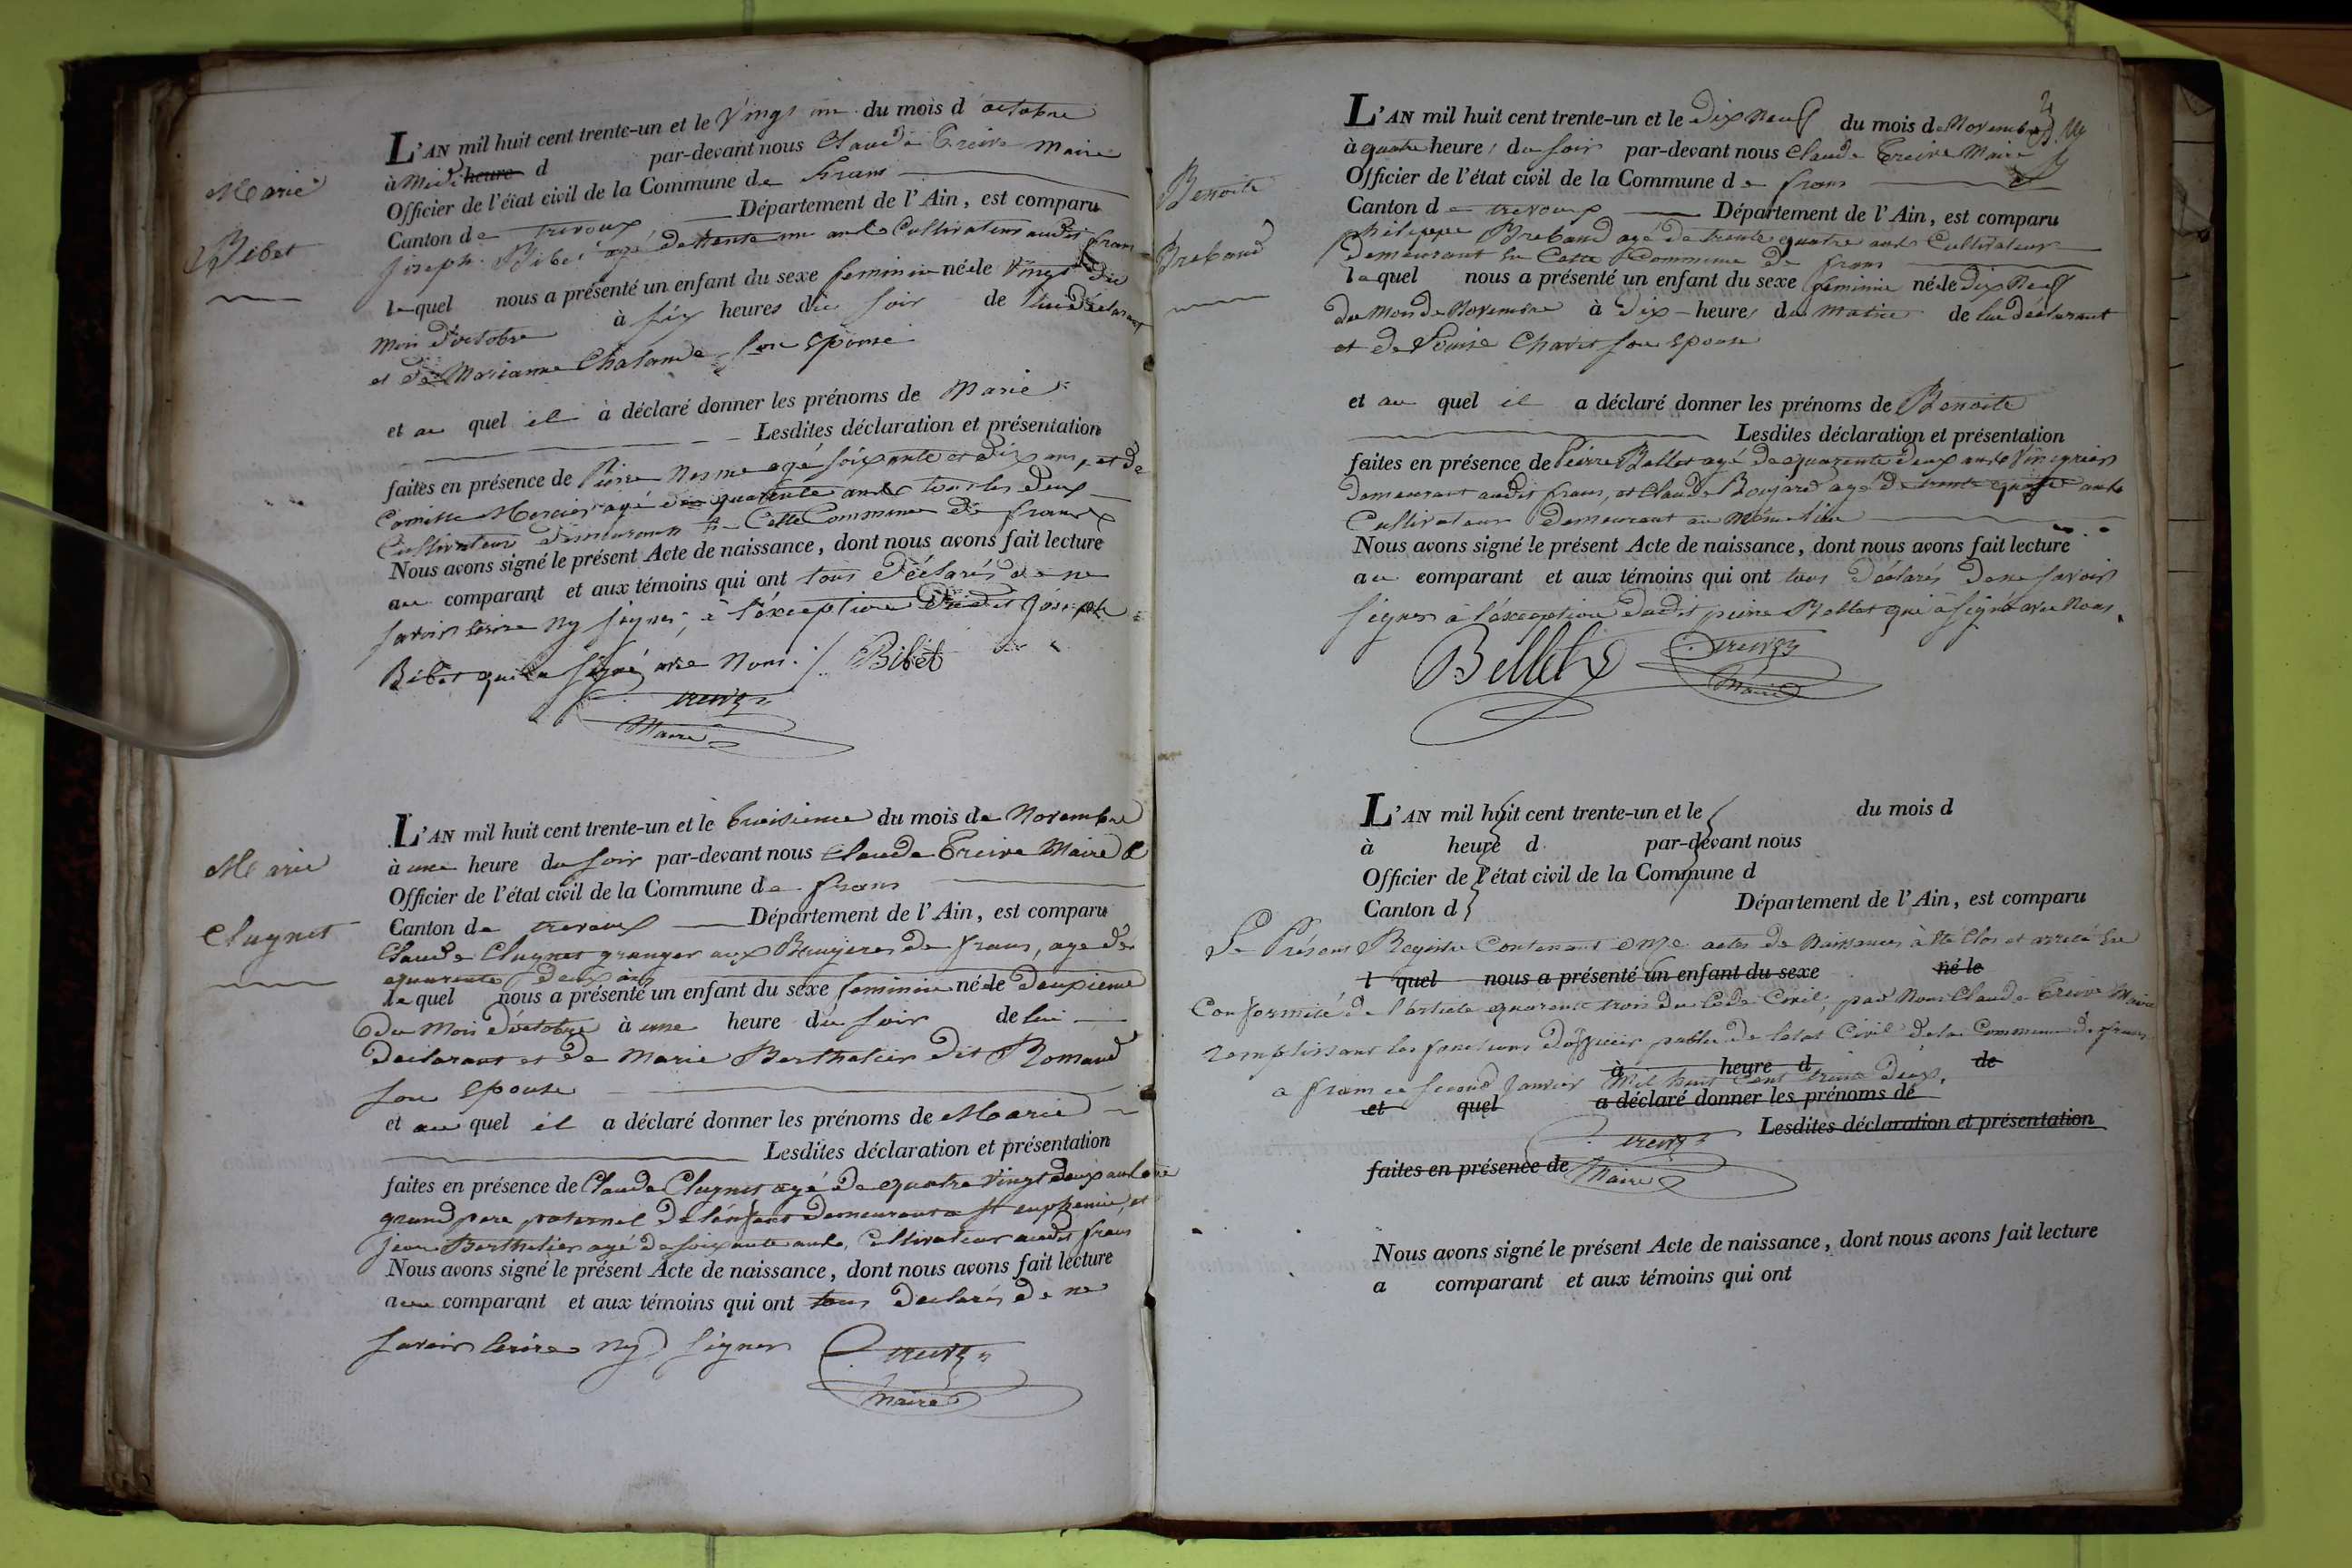 Marie
Bibet
L'AN mil huit cent trente-un et le Vingt un du mois d'octobre
à Midi heure d par-devant nous Claude Treive Maire
Officier de l'état civil de la Commune de frans
Canton de trevoux Département de l'Ain, est comparu
joseph Bibet agé de trente un ans Cultivateur audit frans
lequel nous a présenté un enfant du sexe feminin né le Vingt du
Mois d'octobre à six heures du soir de lui déclarant
et de Marianne Chalande son Epouse
et au quel il à déclaré donner les prénoms de Marie
Lesdites déclaration et présentation
faites en présence de Pierre Nesme agé soixante et dix ans, et de
Camille Mercier agé de quarente ans tous les deux
Cultivateurs demeurant En Cette Commune de frans
Nous avons signé le présent Acte de naissance, dont nous avons fait lecture
au comparant et aux témoins qui ont tous déclarés de ne
savoir Ecrire ny signer, à l'éxception dudit joseph
Bibet qui a signé avec Nous. Bibet
treive
Maire
Marie
Clugnet
L'AN mil huit cent trente-un et le troisieme du mois de Novembre
à une heure du soir par-devant nous Claude Treive Maire &
Officier de l'état civil de la Commune de frans
Canton de trevoux Département de l'Ain, est comparu
Claude Clugnet granger aux Bruyeres de frans, age de
quarente deux ans
lequel nous a présenté un enfant du sexe feminin né le deuxieme
du Mois d'octobre à une heure du soir de lui
déclarant et de Marie Berthelier dit Romand
son Epouse
et au quel il a déclaré donner les prénoms de Marie
Lesdites déclaration et présentation
faites en présence de Claude Clugnet agé de quatre Vingt deux ans
grand pere paternel de l'énfant demeurant a St euphemie, et
jean Berthelier agé de soixante ans, Cultivateur audit frans
Nous avons signé le présent Acte de naissance, dont nous avons fait lecture
au comparant et aux témoins qui ont tous declarés de ne
savoir Ecrire ny signer
treive
Maire
Benoite
Brebaud
L'AN mil huit cent trente-un et le dix Neuf du mois de Novembre
à quatre heures du soir par-devant nous Claude Treive Maire
Officier de l'état civil de la Commune de frans
Canton de trevoux Département de l'Ain, est comparu
philippe Brebaud agé de trente quatre ans Cultivateur
demeurant En Cette Commune de frans
lequel nous a présenté un enfant du sexe feminin né le dix Neuf
du Mois de Novembre à dix heures du Matin de lui déclarant
et de Louise Chavet son Epouse
et au quel il a déclaré donner les prénoms de Benoite
Lesdites déclaration et présentation
faites en présence de Peirre Bellet agé de quarente deux ans Vingneron
demeurant audit frans, et Claude Boujard agé de trente quatre ans
Cultivateur demeurant au Même lieu
Nous avons signé le présent Acte de naissance, dont nous avons fait lecture
au comparant et aux témoins qui ont tous déclarés de ne savoir
signer à l'éxception dudit peirre Bellet qui à signé avec Nous.
Bellet treive
Maire
L'AN mil huit cent trente-un et le du mois d
à heure d par-devant nous
Officier de l'état civil de la Commune d
Canton d Département de l'Ain, est comparu
Le Présent Registre Contenant onze actes de Naissances à été Clos et arreté En
l quel nous a présenté un enfant du sexe né le
Conformité de l'article quarente trois du Code Civil, par Nous Claude Treive Maire
remplissant les fonctions d'officier public de l'etat Civil de la Commune de frans
à heure d de
a frans ce second Janvier Mil huit Cent trente deux.
et quel a déclaré donner les prénoms de
Lesdites déclaration et présentation
treive
faites en présence de Maire
Nous avons signé le présent Acte de naissance, dont nous avons fait lecture
a comparant et aux témoins qui ont